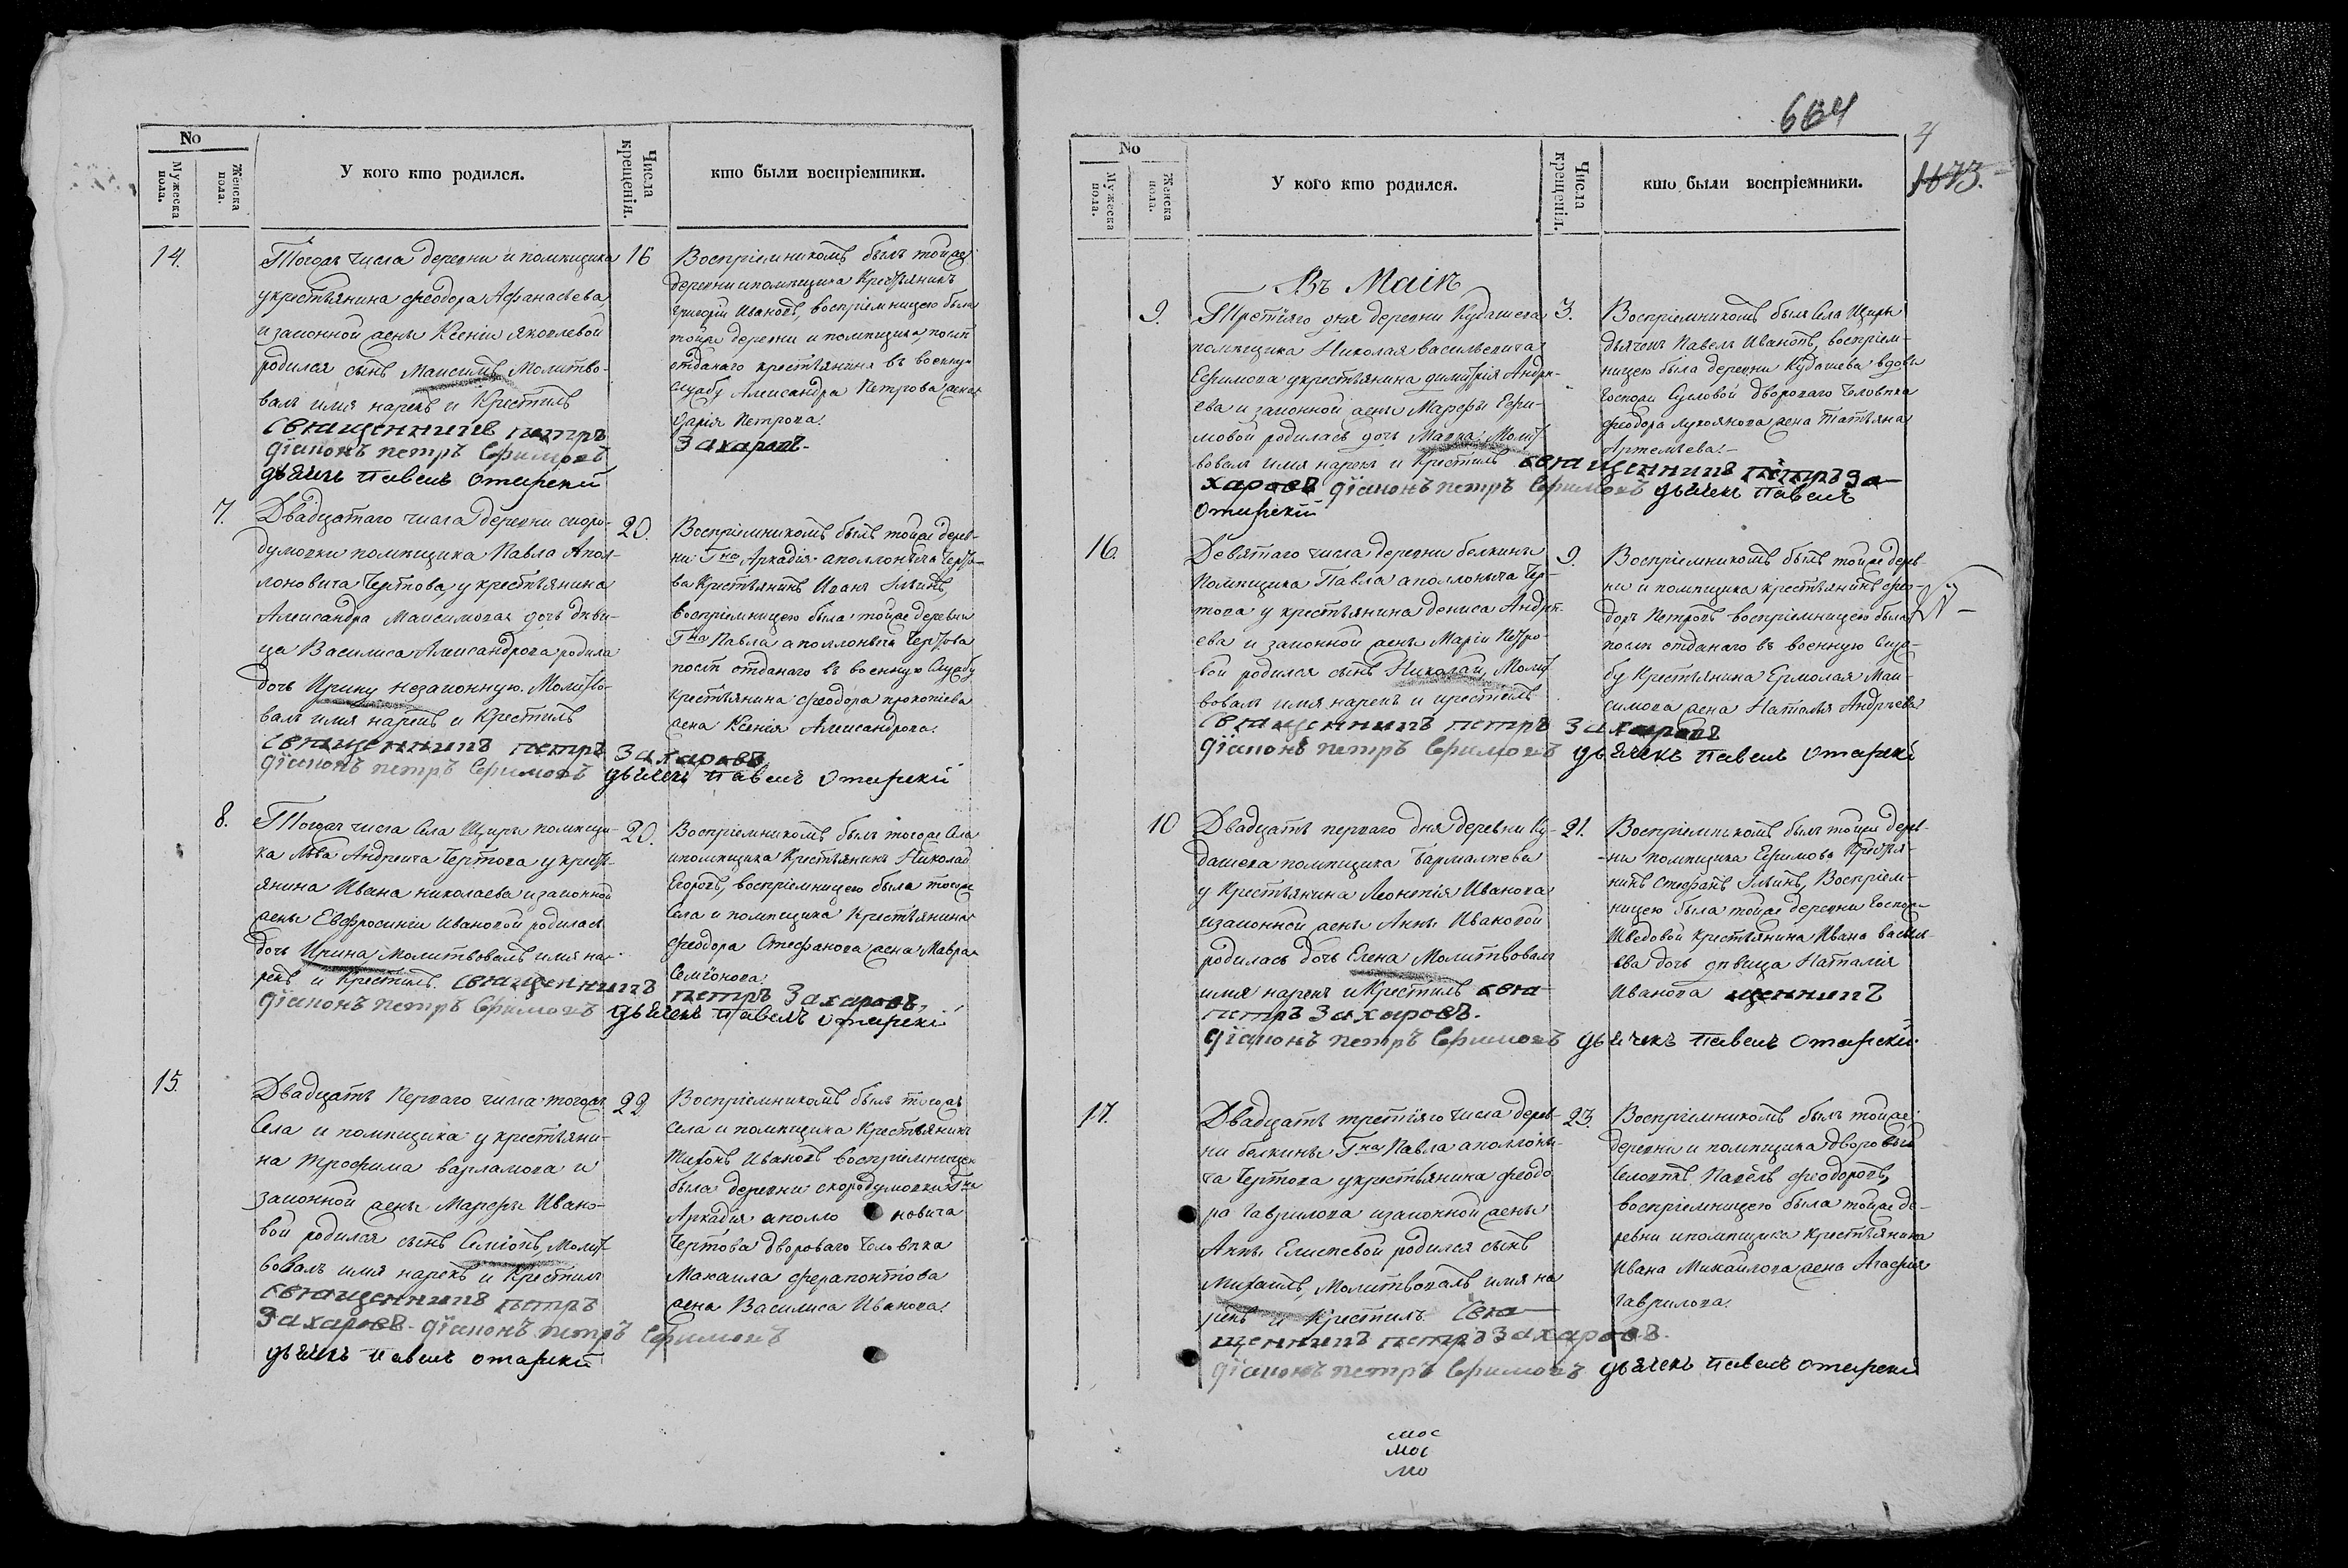 No
Мужеска пола.
Женска пола.
У кого кто родился.
Числа крещенія.
кто были воспріемники.
14.
Тогожъ числа деревни и помѣщика
у крестьянина Феодора Афанасьева
и законной жены Ксеніи Яковлевой
родился сынъ Максимъ, Молитво-
валъ имя нарекъ и Крестилъ
священникъ петръ
діаконъ петръ Ефимовъ
дьячекъ павелъ
16
Воспріемникомъ былъ тойже
деревни и помѣщика Крестьянинъ
Григорій Ивановъ, воспріемницею была
тойже деревни и помѣщика, послѣ
отданаго крестьянина въ военную
службу Александра Петрова жена
Дарія Петрова.
Захаровъ.
7.
Двадцатаго числа деревни скоро-
думовки помѣщика Павла Апол-
лоновича Чертова, у крестьянина
Александра Максимова дочь дѣви-
ца Василиса Александрова родила
дочь Ирину незаконную. Молитво-
валъ имя нарекъ и Крестилъ
священникъ петръ Захаровъ
діаконъ петръ Ефимовъ дьячекъ павелъ
20.
Воспріемникомъ былъ тойже дерев-
ни Гна Аркадія аполлоныча Черто-
ва Крестьянинъ Иванъ Ильинъ,
воспріемницею была тойже деревни
Гна Павла аполлоныча Чертова
послѣ отданаго въ военную Службу
крестьянина феодора прокопіева
жена Ксенія Александрова.
8.
Тогожъ числа Села Щиры помѣщи-
ка Льва Андреича Чертова у кресть-
янина Ивана николаева и законной
жены Евфросиніи Ивановой родилась
дочь Ирина, Молитвовалъ имя на-
рекъ и Крестилъ. священникъ
петръ Захаровъ,
діаконъ петръ Ефимовъ дьячекъ павелъ
20.
Воспріемникомъ былъ тогоже Села
и помѣщика Крестьянинъ Николай
Егоровъ, воспріемницею была тогоже
Села и помѣщика Крестьянина
феодора Стефанова жена Мавра
Семіонова.
15.
Двадцать Перваго числа тогожъ
Села и помѣщика у крестьяни-
на Трофима варламова и
законной жены Марфы Ивано-
вой родился сынъ Семіонъ, Молит-
вовалъ имя нарекъ и Крестилъ
священникъ петръ
Захаровъ. діаконъ петръ Ефимовъ
дьячекъ павелъ
22
Воспріемникомъ былъ тогожъ
Села и помѣщика Крестьянинъ
Ивановъ воспріемницею
была деревни скородумовки Гна
Аркадія аполлоновича
Чертова двороваго человѣка
Михаила ферапонтова
жена Василиса Иванова.
664
4
1673.
No
Мужеска пола.
Женска пола.
У кого кто родился.
Числа крещенія.
кто были воспріемники.
Въ Маіѣ
9.
Третіяго дня деревни Кудашева
помѣщика Николая васильевича
Ефимова у крестьянина димитрія Андре-
ева и законной жены Марфы Ефи-
мовой родилась дочь Мавра. Молит-
вовалъ имя нарекъ и Крестилъ священникъ петръ За-
харовъ діаконъ петръ Ефимовъ дьячекъ павелъ
3.
Воспріемникомъ былъ Села Щиры
дьячекъ Павелъ Ивановъ, воспріем-
ницею была деревни Кудашева вдовы
Госпожи Сысловой двороваго человѣка
феодора жена Татьяна
Артемьева.
16.
Девятаго числа деревни белкины
Помѣщика Павла аполлоныча Чер-
това у крестьянина дениса Андре-
ева и законной жены Маріи Петро-
вой родился сынъ Николай, Молит-
вовалъ имя нарекъ и крестилъ
священникъ петръ Захаровъ
діаконъ петръ Ефимовъ дьячекъ павелъ
9.
Воспріемникомъ былъ тойже дерев-
ни и помѣщика крестьянинъ фео-
доръ Петровъ воспріемницею была
послѣ отданаго въ военную служ-
бу Крестьянина Ермолая Мак-
симова жена Наталья Андреева
10
Двадцать перваго дня деревни Ку-
дашева помѣщика
у Крестьянина Леонтія Иванова
и законной жены Анны Ивановой
родилась дочь Елена Молитвовалъ
имя нарекъ и Крестилъ свя-
щенникъ
петръ Захаровъ.
діаконъ петръ Ефимовъ дьячекъ павелъ
21.
Воспріемникомъ былъ тойже дерев-
ни помѣщика Ефимова Крестья-
нинъ Стефанъ Ильинъ, Воспріем-
ницею была тойже деревни Госпожи
Шведовой Крестьянина Ивана василь-
ева дочь дѣвица Наталія
Иванова
17.
Двадцать третіяго числа дерев-
ни белкины Гна Павла аполлоны-
ча Чертова у крестьянина феодо-
ра Гаврилова и законной жены
Анны Елисеевой родился сынъ
Михаилъ, Молитвовалъ имя на-
рекъ и Крестилъ. Свя-
щенникъ петръ Захаровъ.
діаконъ петръ Ефимовъ дьячекъ павелъ
23.
Воспріемникомъ былъ тойже
деревни и помѣщика дворовый
человѣкъ Павелъ феодоровъ,
воспріемницею была тойже де-
ревни и помѣщика Крестьянина
Ивана Михайлова жена Агафія
Гаврилова.
мос
мос
мо